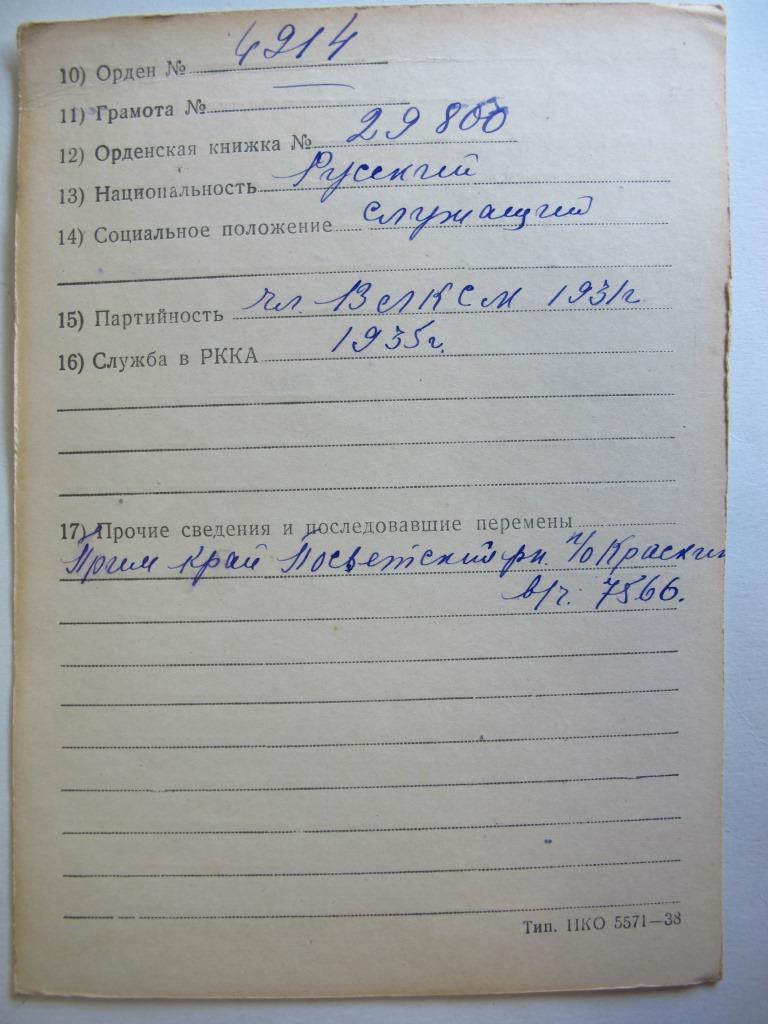 10) Орден № 4214
11) Грамота № —
12) Орденская книжка № 29800
13) Национальность Русский
14) Социальное положение служащий
15) Партийность чл. ВЛКСМ 1931г
16) Служба в РККА 1935г.
17) Прочие сведения и последовавшие перемены
Прим край Посьетский рн. п/о Краский
в/ч. 7566.
Тип. НКО 5571—38